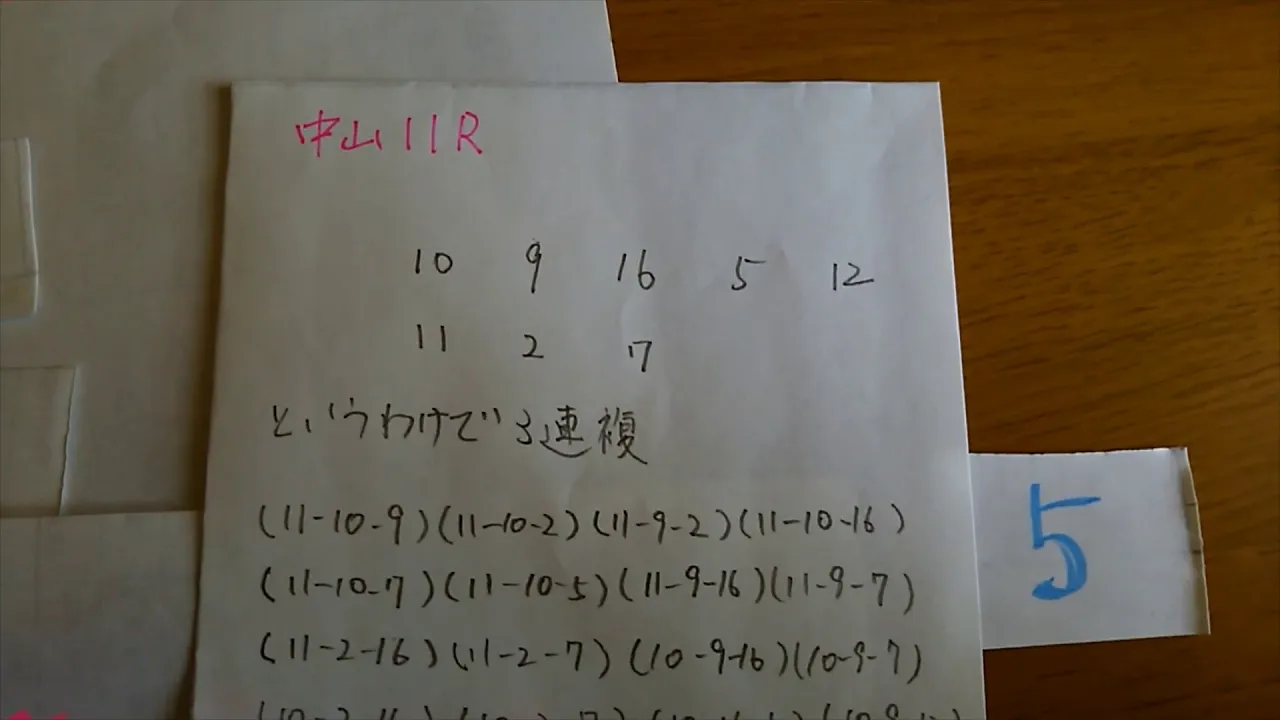 中山11R
10 9 16 5 12
11 2 7
というわけで3連複
(11-10-9)(11-10-2)(11-9-2)(11-10-16)
(11-10-7)(11-10-5)(11-9-16)(11-9-7)
(11-2-16)(11-2-7)(10-9-16)(10-9-7)
5